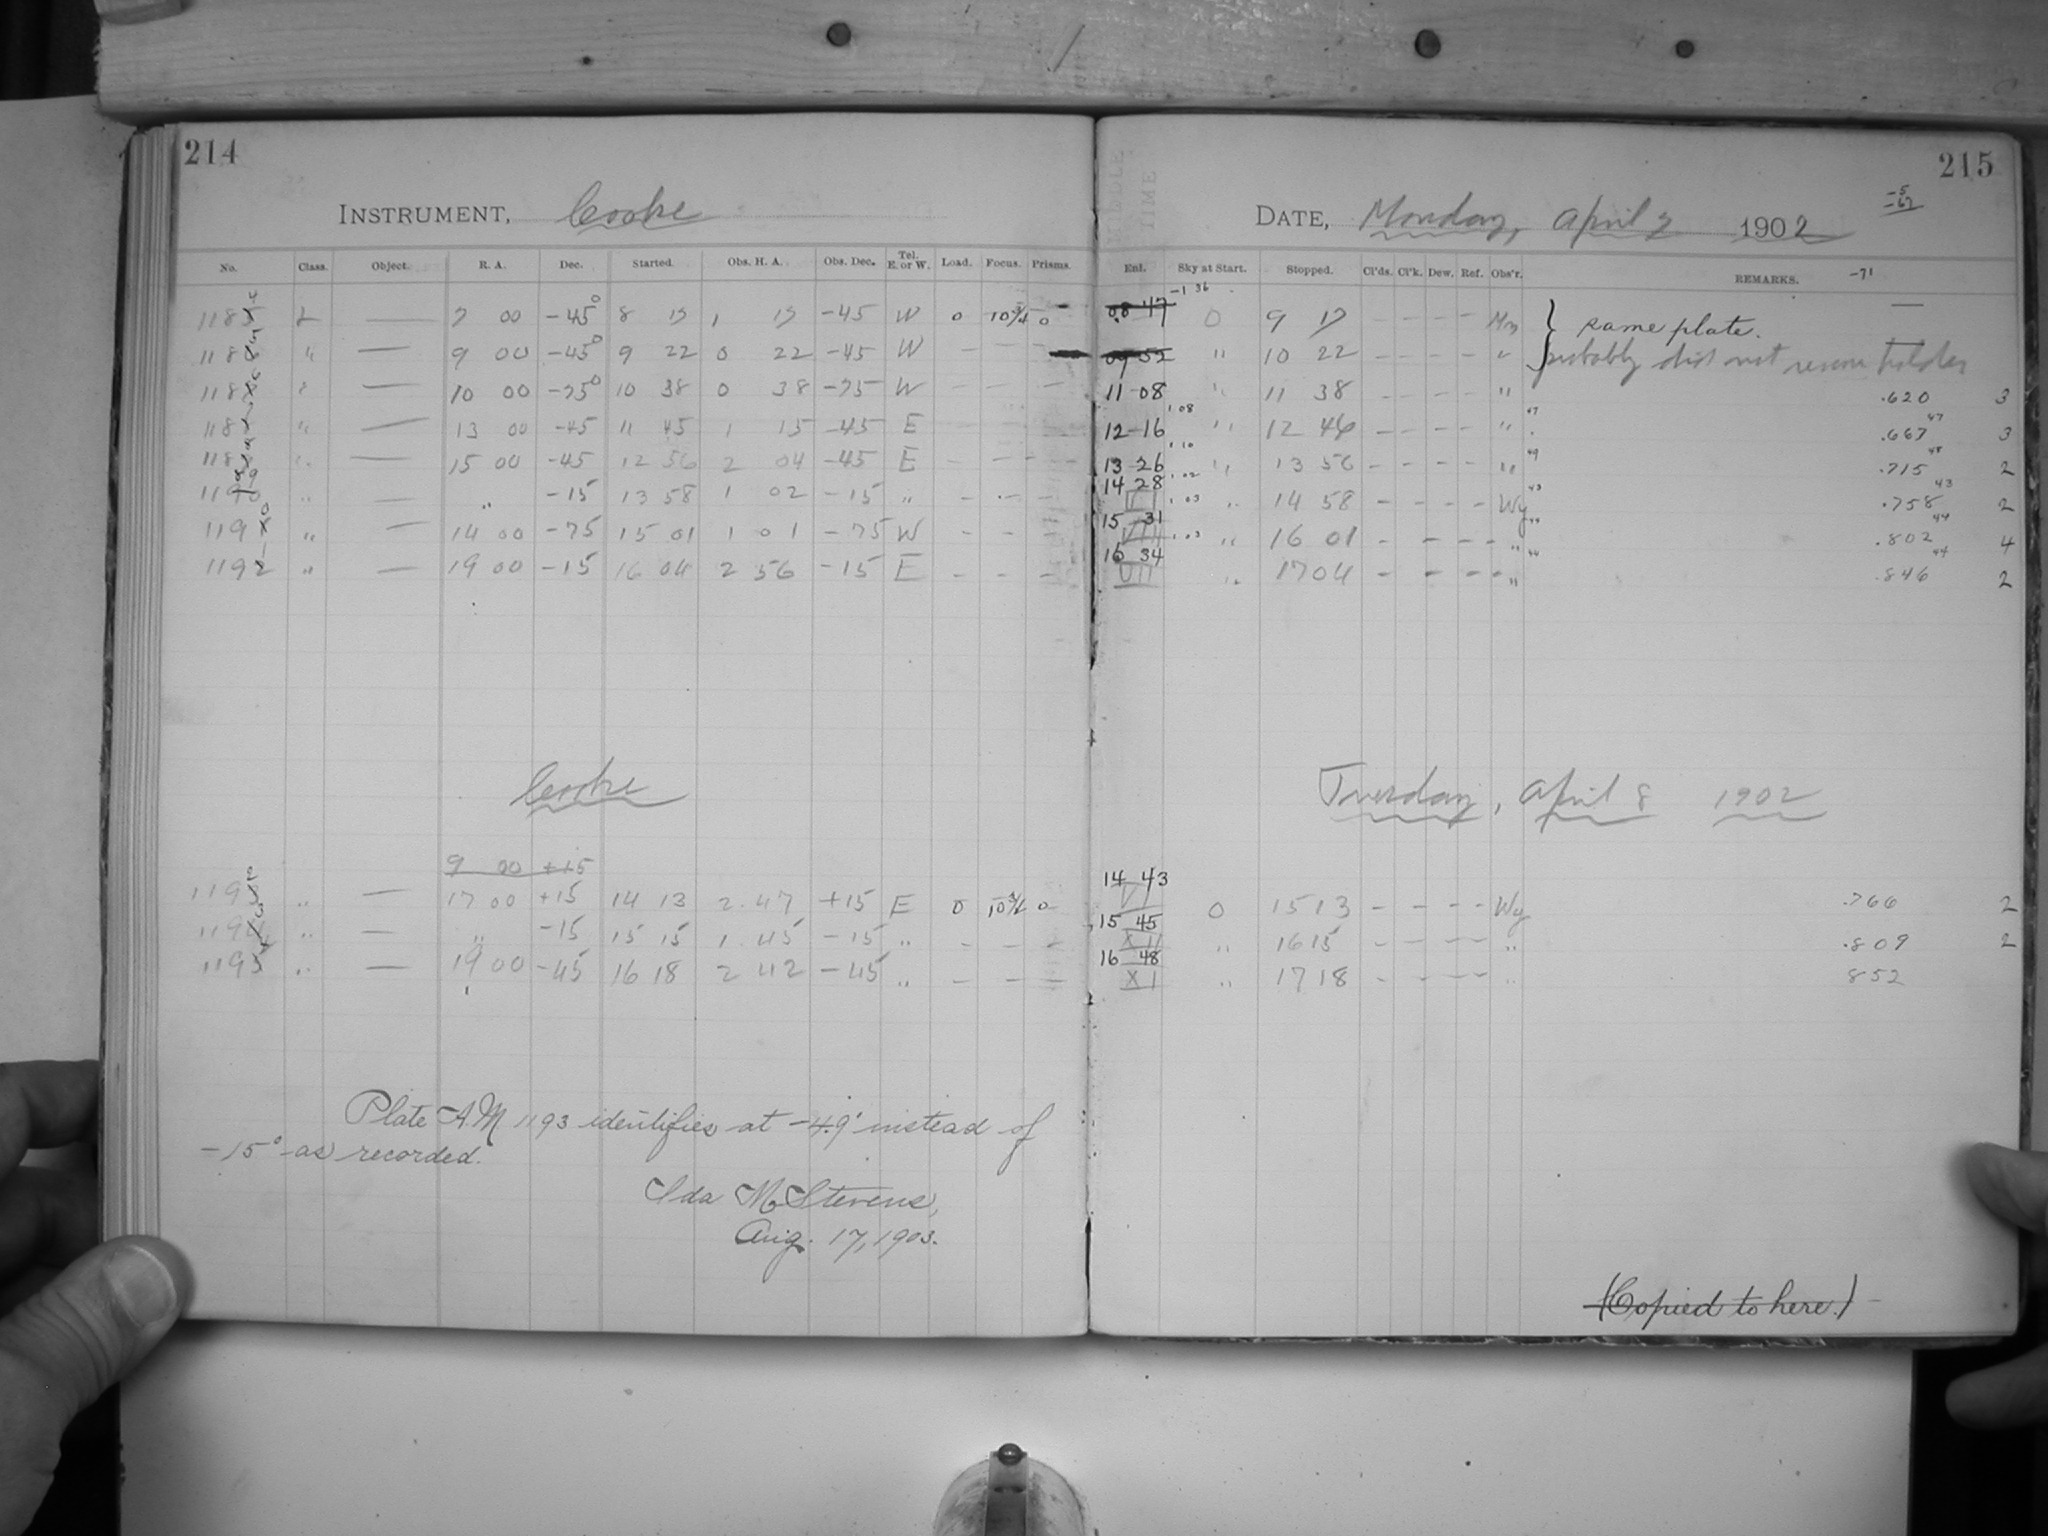 214
INSTRUMENT, Cooke
No. Class. Object. R. A. Dec. Started. Obs. H. A. Obs. Dec. Tel. E. or W. Load. Focus. Prisms.
2 — 7 00 -45° 8 17 1 17 -45 W 0 10¾ 0
" — 9 00 -45° 9 22 0 22 -45 W — — —
" — 10 00 -75° 10 38 0 38 -75 W — — —
" — 13 00 -45 11 45 1 15 -45 E — — —
" — 15 00 -45 12 56 2 04 -45 E — — —
" — " -15 13 58 1 02 -15 " — — —
" — 14 00 -75 15 01 1 01 -75 W — — —
1192 " — 19 00 -15 16 04 2 56 -15 E — — —
Cooke
9 00 +15
" — 17 00 +15 14 13 2 47 +15 E 0 10¾ 0
" — " -15 15 15 1 45 -15 " — — —
" — 19 00 -45 16 18 2 42 -45 " — — —
Plate A.M 1193 identifies at -4.9° instead of
-15° as recorded.
Ida M Stevens,
Aug. 17, 1903.
215
DATE, Monday, April 7 1902
-5
-67
Enl. Sky at Start. Stopped. Cl'ds. Cl'k. Dew. Ref. Obs'r. REMARKS. -71
-1 36
08 47 0 9 17 — — — — same plate. —
09 52 " 10 22 — — — — " probably did not rename holder —
11 08 " 11 38 — — — — " .620 3
1.08 47 47
12 16 " 12 46 — — — — " .667 3
1.10 49 48
13 26 " 13 56 — — — — " .715 2
1.02 43 43
14 28 VI " 14 58 — — — — Wy .758 2
1.03 44 44
15 31 VIII " 16 01 — — — — " .802 4
1.03 44 44
16 34 VII " 17 04 — — — — " .846 2
Tuesday, April 8 1902
14 43 VI 0 15 13 — — — — Wy .766 2
15 45 XII " 16 15 — — — — " .809 2
16 48 XI " 17 18 — — — — " 852
(Copied to here.)